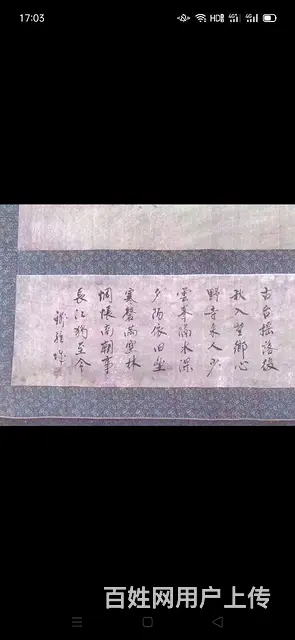 17:03
HD
古台搖落後
秋入望鄉心
野寺来人少
雲峯隔水深
夕陽依旧垒
寒磬满空林
惆悵南朝事
長江獨至今
百姓网用户上传